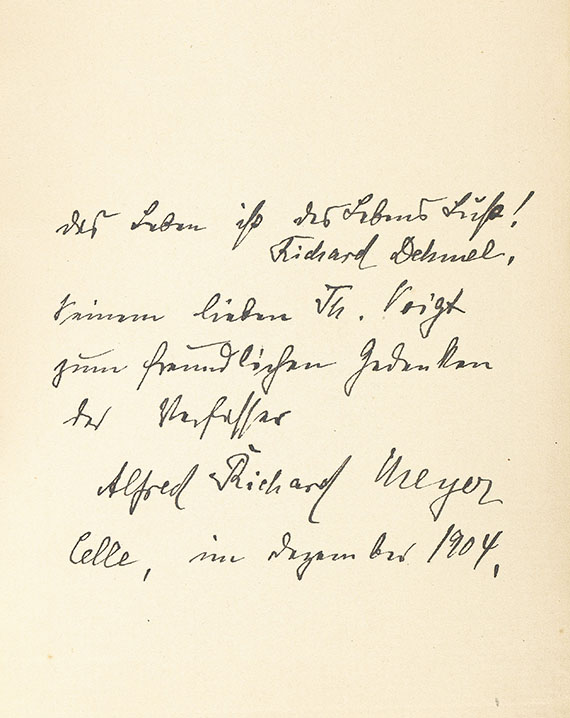 das Leben ist des Lebens Lust!
Richard Dehmel.
Seinem lieben Th. Voigt
zum freundlichen Gedenken
der Verfasser
Alfred Richard Meyer
Celle, im Dezember 1904.